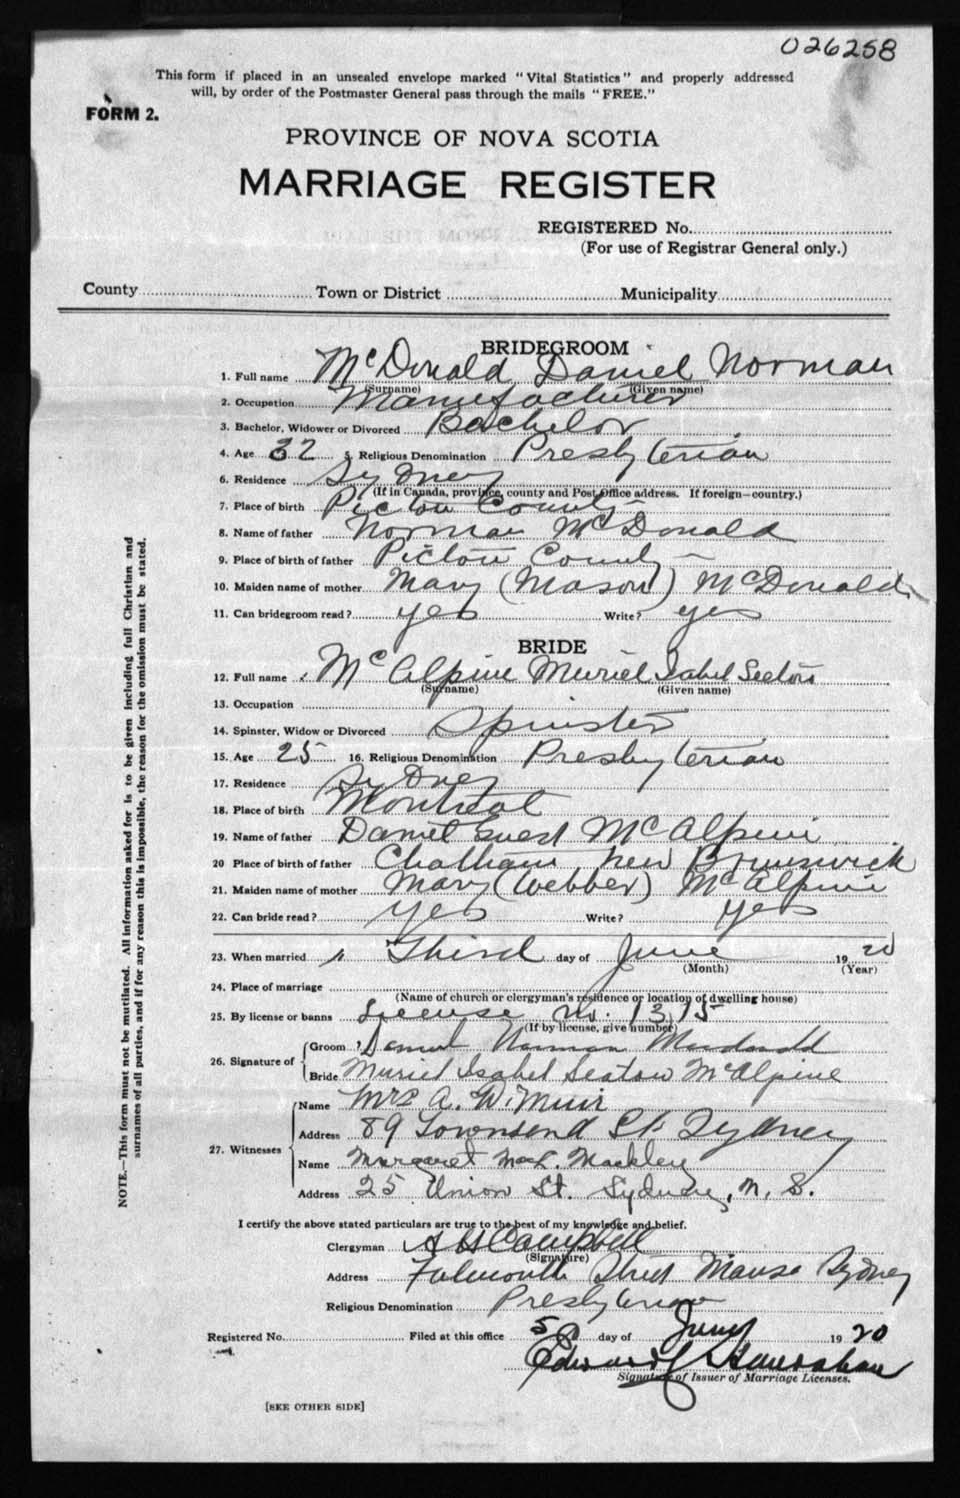 026258
This form if placed in an unsealed envelope marked "Vital Statistics" and properly addressed
will, by order of the Postmaster General pass through the mails "FREE."
FORM 2.
PROVINCE OF NOVA SCOTIA
MARRIAGE REGISTER
REGISTERED No.
(For use of Registrar General only.)
County Town or District Municipality
BRIDEGROOM
1. Full name McDonald Daniel Norman
(Surname) (Given name)
2. Occupation Manufacturer
3. Bachelor, Widower or Divorced Bachelor
4. Age 32 5. Religious Denomination Presbyterian
6. Residence Sydney
(If in Canada, province, county and Post Office address. If foreign—country.)
7. Place of birth Pictou County
8. Name of father Norman McDonald
9. Place of birth of father Pictou County
10. Maiden name of mother Mary (Mason) McDonald
11. Can bridegroom read? yes Write? yes
BRIDE
12. Full name McAlpine Muriel Isabel Seaton
(Surname) (Given name)
13. Occupation
14. Spinster, Widow or Divorced Spinster
15. Age 25 16. Religious Denomination Presbyterian
17. Residence Sydney
18. Place of birth Montreal
19. Name of father Daniel McAlpine
20 Place of birth of father Chatham New Brunswick
21. Maiden name of mother Mary (Webber) McAlpine
22. Can bride read? yes Write? yes
23. When married Third day of June 1920
(Month) (Year)
24. Place of marriage
(Name of church or clergyman's residence or location of dwelling house)
25. By license or banns License No. 1315
(If by license, give number)
26. Signature of
Groom Daniel Norman Macdonald
Bride Muriel Isabel Seaton McAlpine
27. Witnesses
Name Mrs A. W. Muir
Address 89 Townsend St. Sydney
Name Margaret MacL. Mackley
Address 25 Union St. Sydney, N. S.
I certify the above stated particulars are true to the best of my knowledge and belief.
Clergyman A H Campbell
(Signature)
Address Falmouth Street Manse Sydney
Religious Denomination Presbyterian
Registered No. Filed at this office 5 day of June 1920
Edward Hanrahan
Signature of Issuer of Marriage Licenses.
[SEE OTHER SIDE]
NOTE.—This form must not be mutilated. All information asked for is to be given including full Christian and
surnames of all parties, and if for any reason this is impossible, the reason for the omission must be stated.